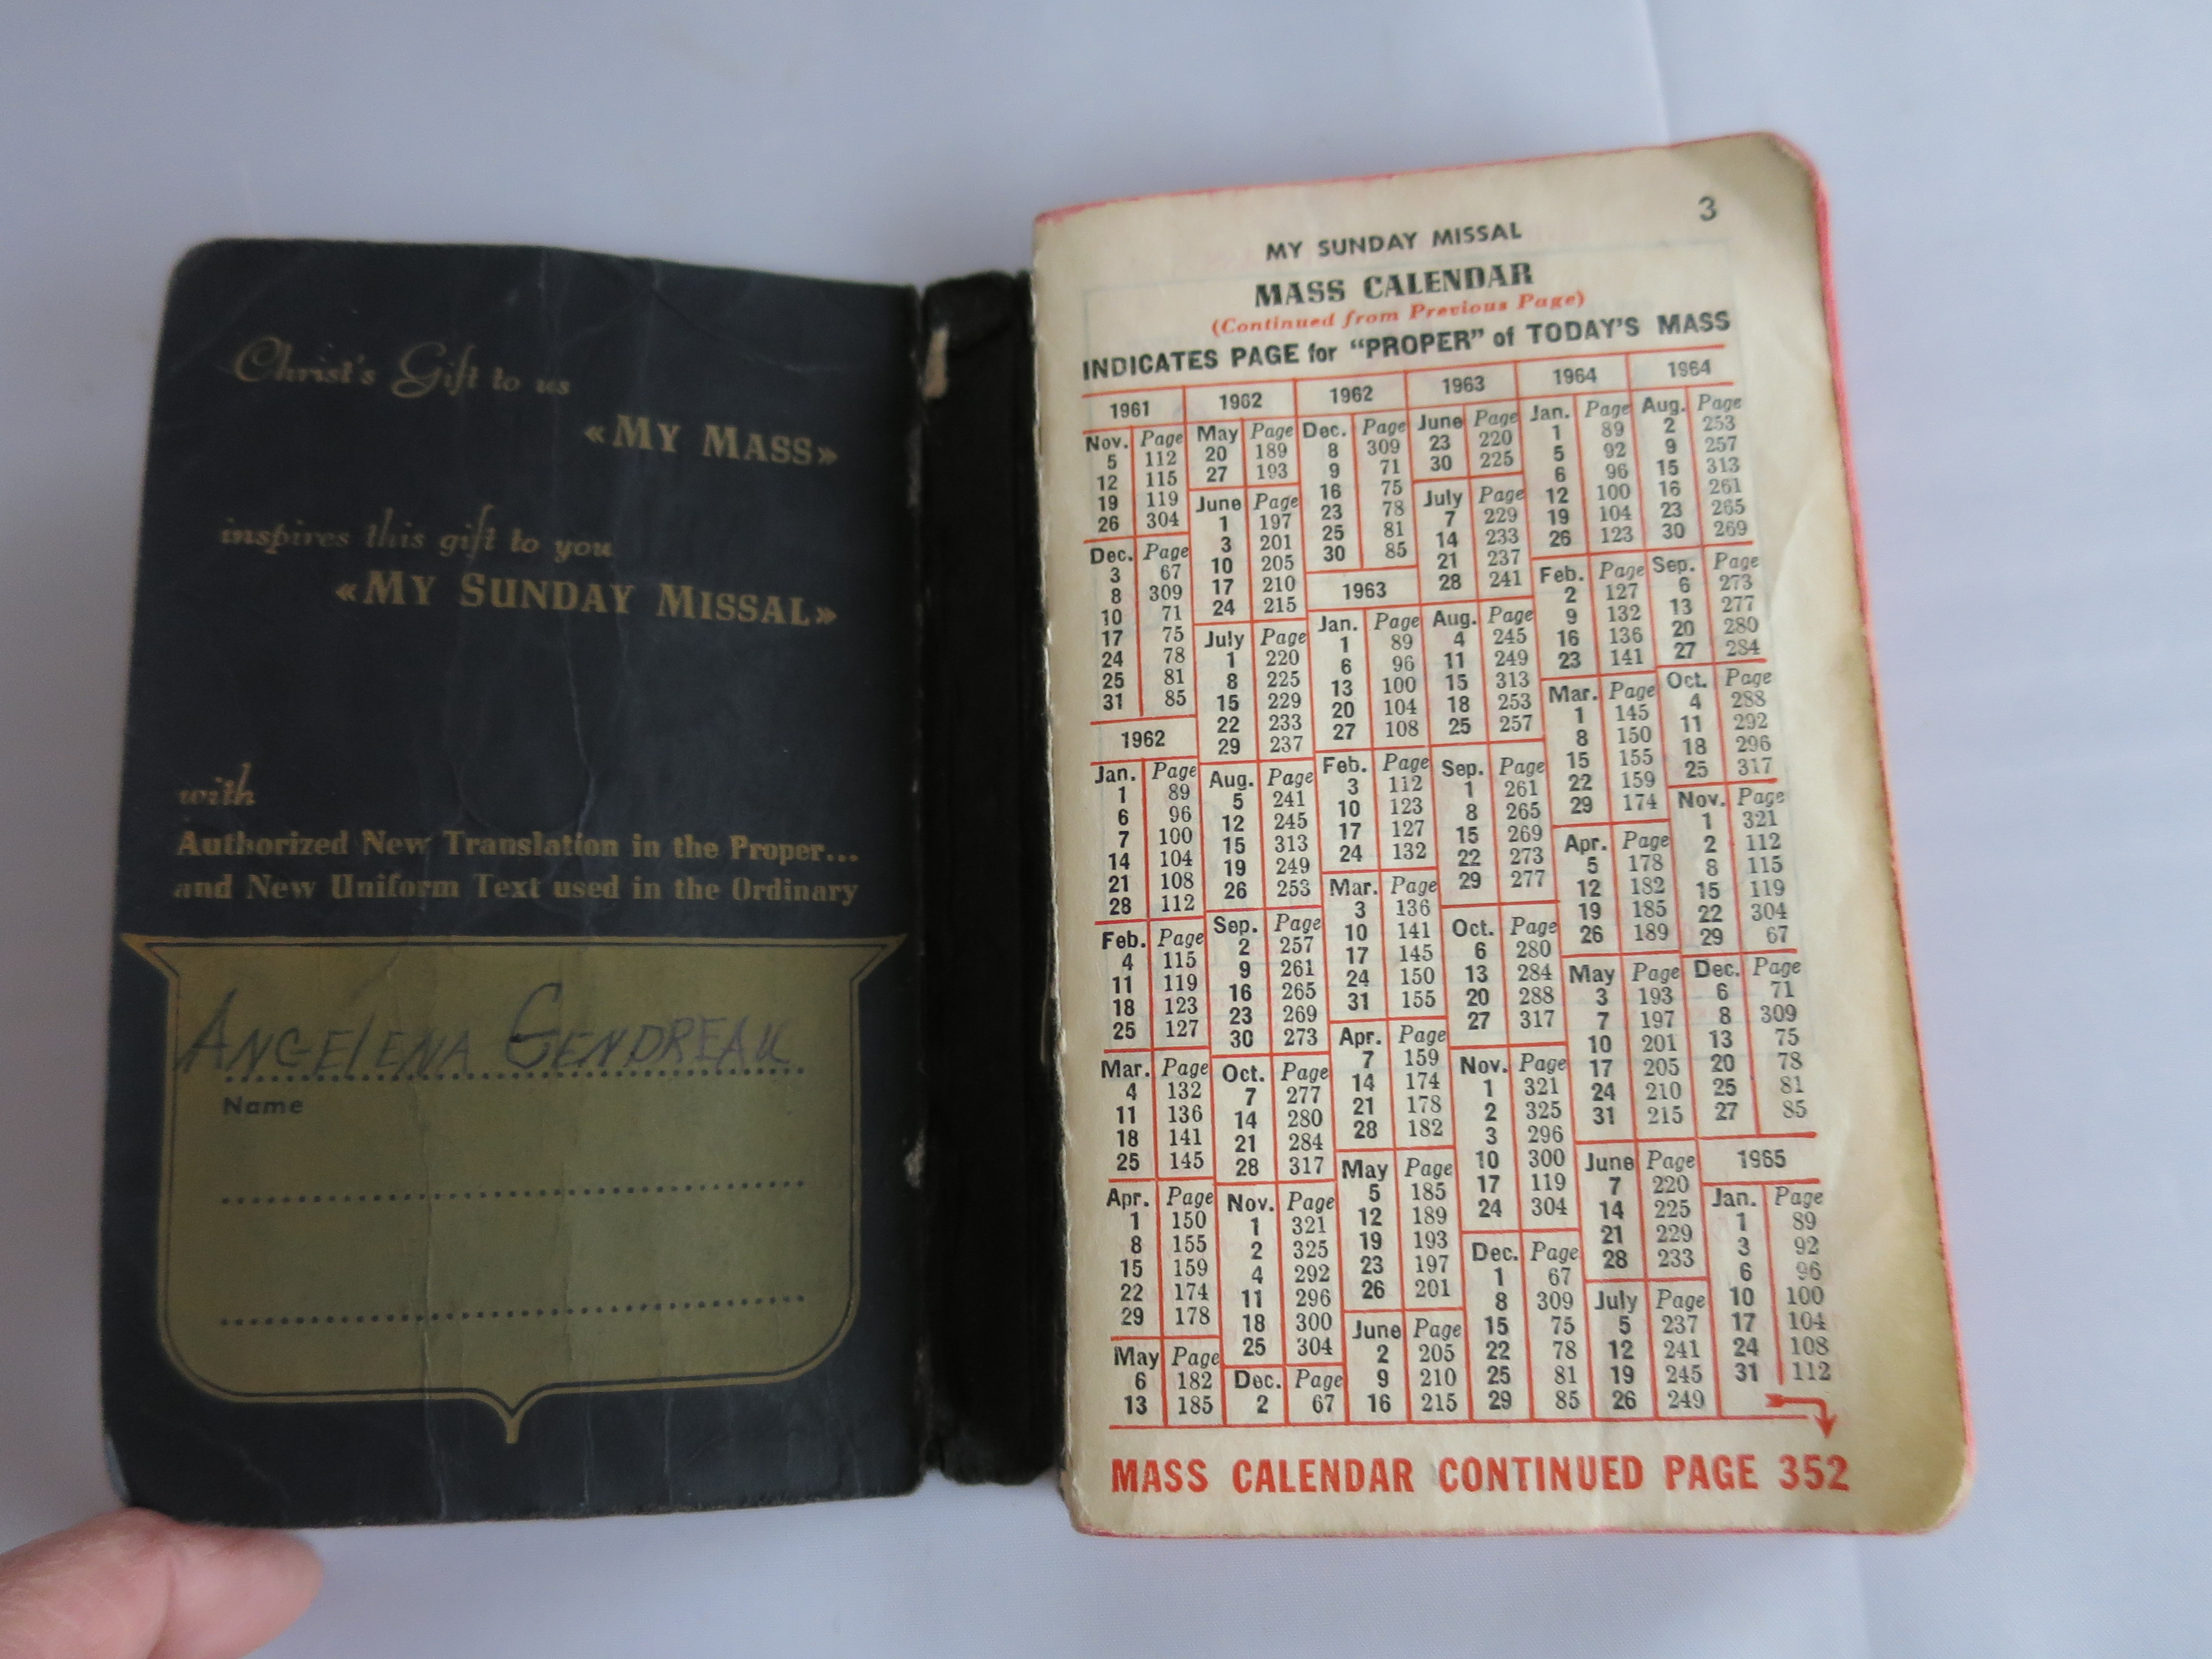 Christ's Gift to us
«MY MASS»
inspires this gift to you
«MY SUNDAY MISSAL»
with
Authorized New Translation in the Proper...
and New Uniform Text used in the Ordinary
ANGELENA GENDREAU
Name
3
MY SUNDAY MISSAL
MASS CALENDAR
(Continued from Previous Page)
INDICATES PAGE for "PROPER" of TODAY'S MASS
1961
Nov. Page
5 112
12 115
19 119
26 304
Dec. Page
3 67
8 309
10 71
17 75
24 78
25 81
31 85
1962
Jan. Page
1 89
6 96
7 100
14 104
21 108
28 112
Feb. Page
4 115
11 119
18 123
25 127
Mar. Page
4 132
11 136
18 141
25 145
Apr. Page
1 150
8 155
15 159
22 174
29 178
May Page
6 182
13 185
1962
May Page
20 189
27 193
June Page
1 197
3 201
10 205
17 210
24 215
July Page
1 220
8 225
15 229
22 233
29 237
Aug. Page
5 241
12 245
15 313
19 249
26 253
Sep. Page
2 257
9 261
16 265
23 269
30 273
Oct. Page
7 277
14 280
21 284
28 317
Nov. Page
1 321
2 325
4 292
11 296
18 300
25 304
Dec. Page
2 67
1962
Dec. Page
8 309
9 71
16 75
23 78
25 81
30 85
1963
Jan. Page
1 89
6 96
13 100
20 104
27 108
Feb. Page
3 112
10 123
17 127
24 132
Mar. Page
3 136
10 141
17 145
24 150
31 155
Apr. Page
7 159
14 174
21 178
28 182
May Page
5 185
12 189
19 193
23 197
26 201
June Page
2 205
9 210
16 215
1963
June Page
23 220
30 225
July Page
7 229
14 233
21 237
28 241
Aug. Page
4 245
11 249
15 313
18 253
25 257
Sep. Page
1 261
8 265
15 269
22 273
29 277
Oct. Page
6 280
13 284
20 288
27 317
Nov. Page
1 321
2 325
3 296
10 300
17 119
24 304
Dec. Page
1 67
8 309
15 75
22 78
25 81
29 85
1964
Jan. Page
1 89
5 92
6 96
12 100
19 104
26 123
Feb. Page
2 127
9 132
16 136
23 141
Mar. Page
1 145
8 150
15 155
22 159
29 174
Apr. Page
5 178
12 182
19 185
26 189
May Page
3 193
7 197
10 201
17 205
24 210
31 215
June Page
7 220
14 225
21 229
28 233
July Page
5 237
12 241
19 245
26 249
1964
Aug. Page
2 253
9 257
15 313
16 261
23 265
30 269
Sep. Page
6 273
13 277
20 280
27 284
Oct. Page
4 288
11 292
18 296
25 317
Nov. Page
1 321
2 112
8 115
15 119
22 304
29 67
Dec. Page
6 71
8 309
13 75
20 78
25 81
27 85
1965
Jan. Page
1 89
3 92
6 96
10 100
17 104
24 108
31 112
MASS CALENDAR CONTINUED PAGE 352